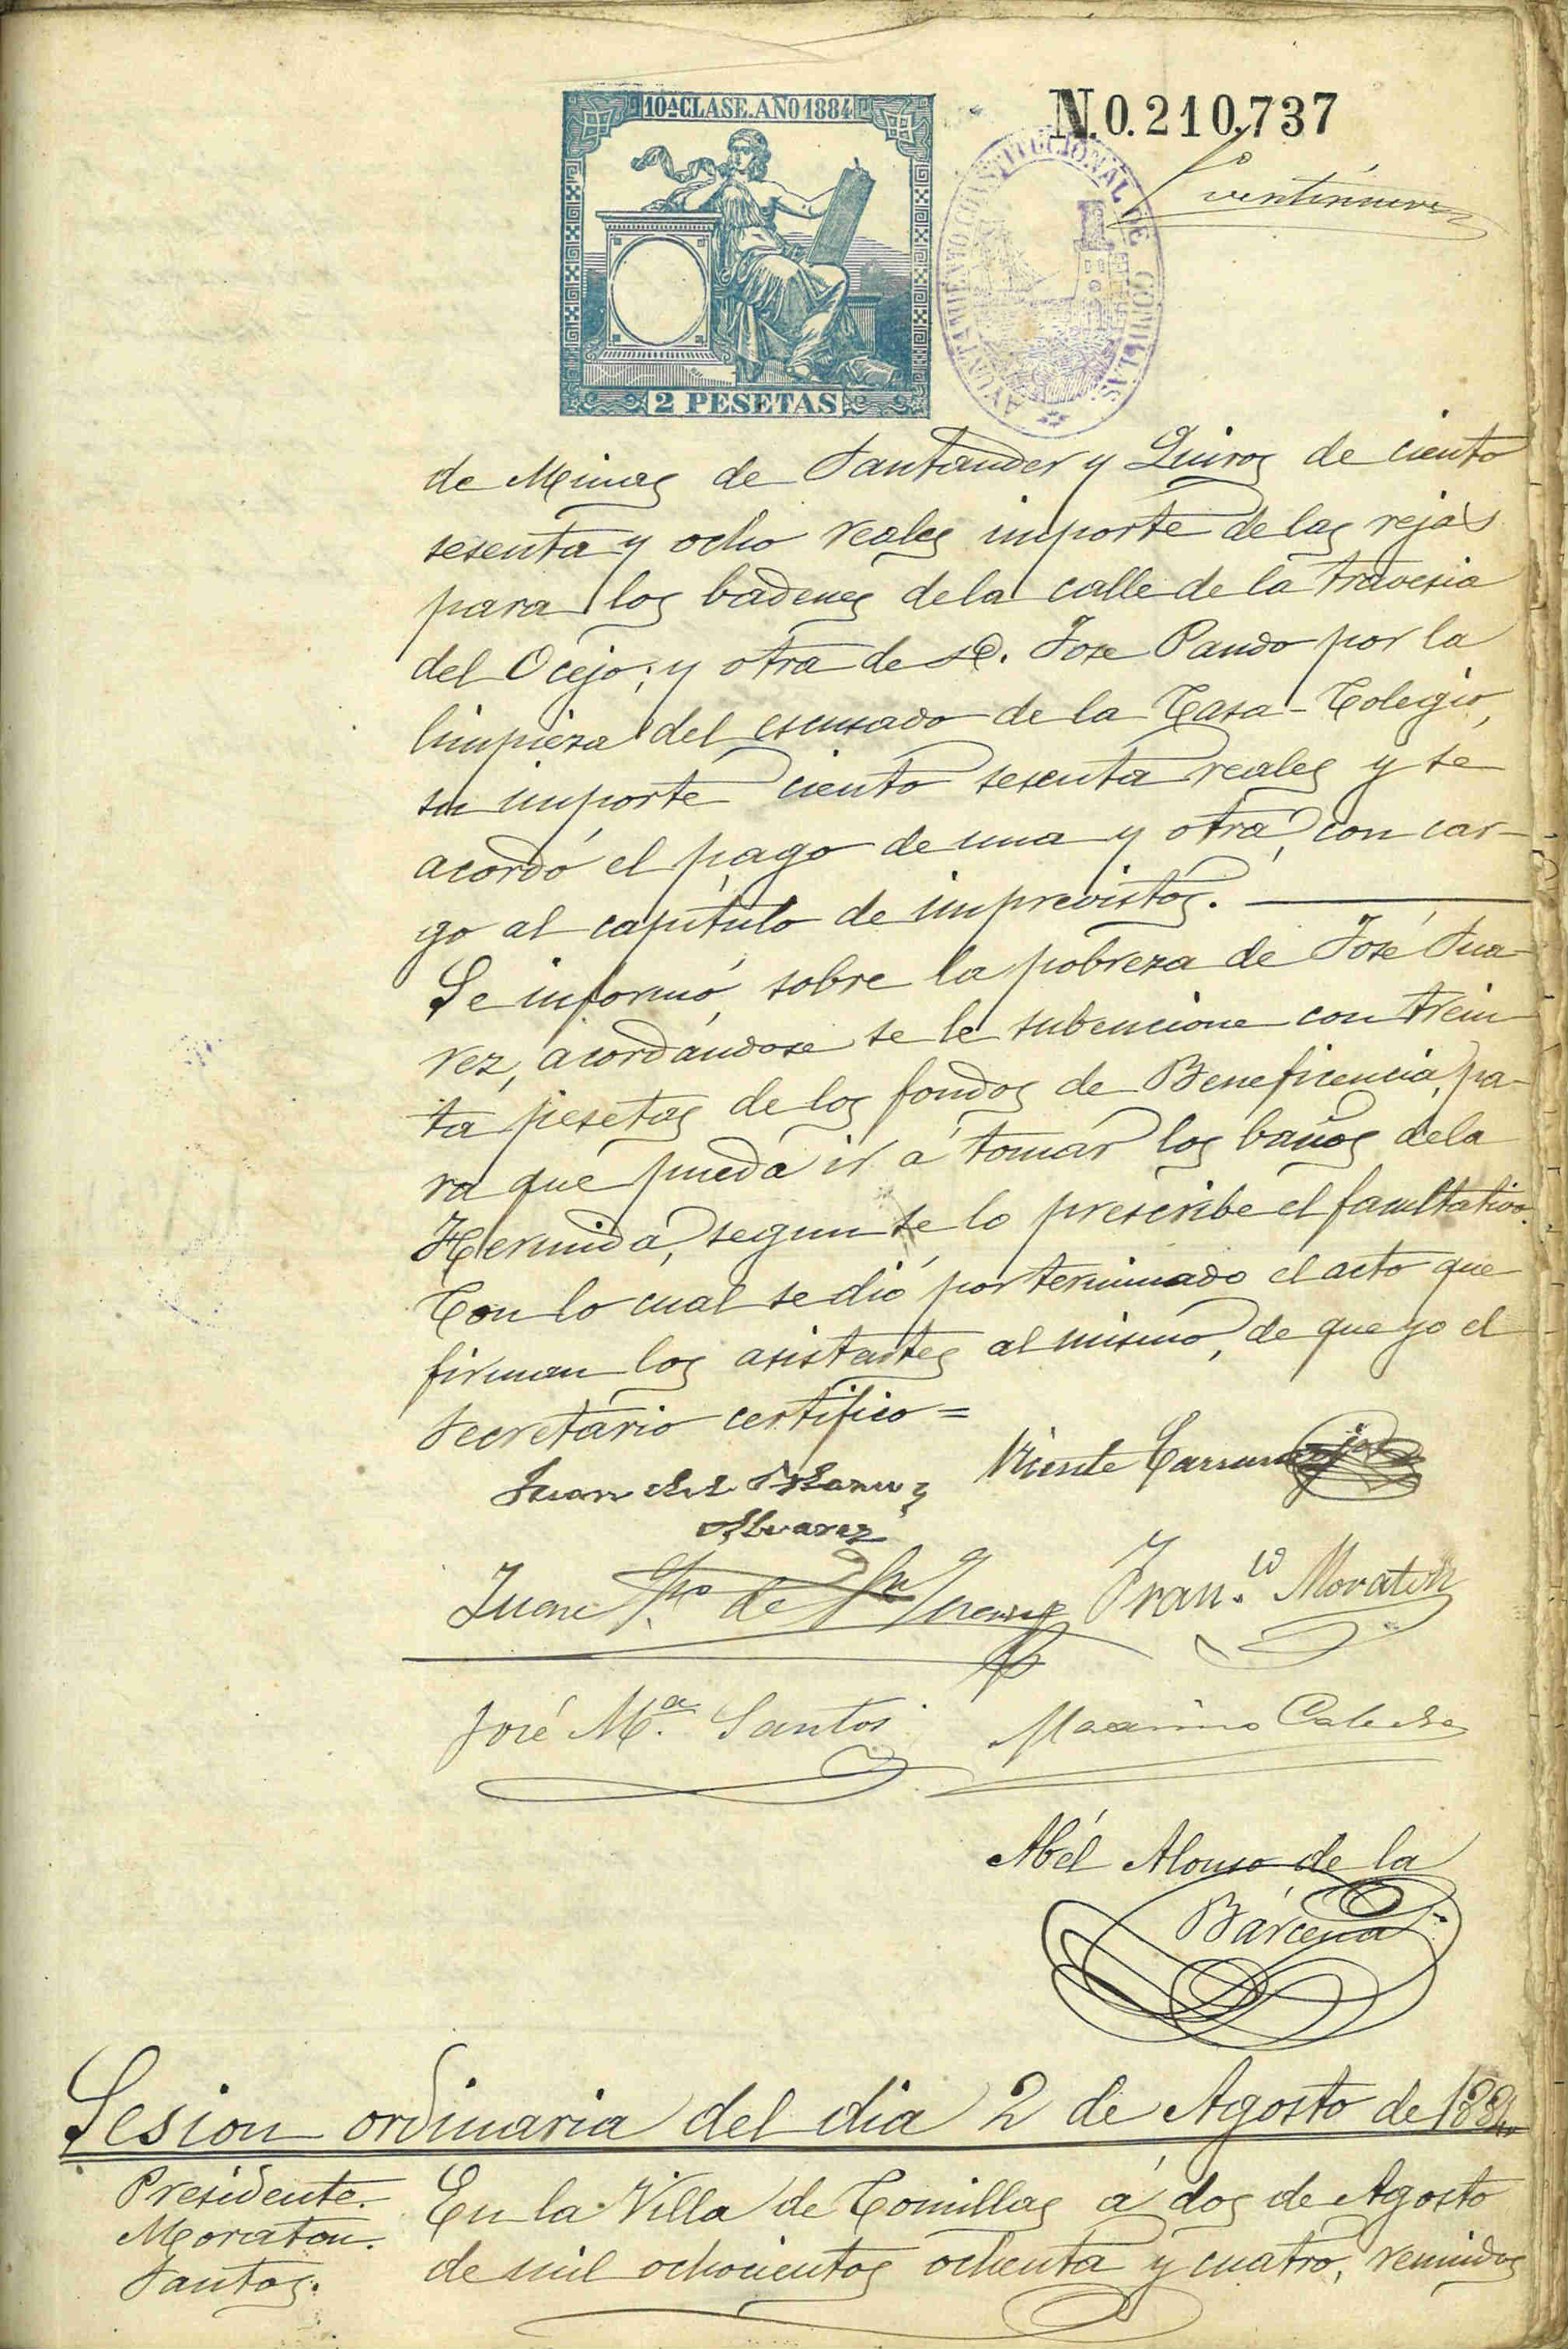 10ª CLASE. AÑO 1884
N.0.210,737
AYUNTAMIENTO CONSTITUCIONAL DE COMILLAS
2 PESETAS
de Minas de Santander y Quiros de ciento
sesenta y ocho reales importe de las rejas
para los badenes de la calle de la travesia
del Ocejo; y otra de D. Jose Pando por la
limpieza del escusado de la Casa-Colegio,
su importe ciento sesenta reales y se
acordó el pago de una y otra, con car-
go al capítulo de imprevistos.
Se informó, sobre la pobreza de José Sua-
rez, acordándose se le subencione con trein-
ta pesetas de los fondos de Beneficencia, pa-
ra que pueda ir á tomar los baños de la
Hermida, segun se lo prescribe el facultativo.
Con lo cual se dió por terminado el acto que
firman los asistentes al mismo, de que yo el
Secretario certifico=
Juan
Alvarez
Vicente
Juan de
Fran.co Moraton
José M.ª Santos
Abél Alonso de la
Bárcena
Sesion ordinaria del dia 2 de Agosto de 1884
Presidente.
Moraton.
Santos.
En la Villa de Comillas á dos de Agosto
de mil ochocientos ochenta y cuatro, reunidos